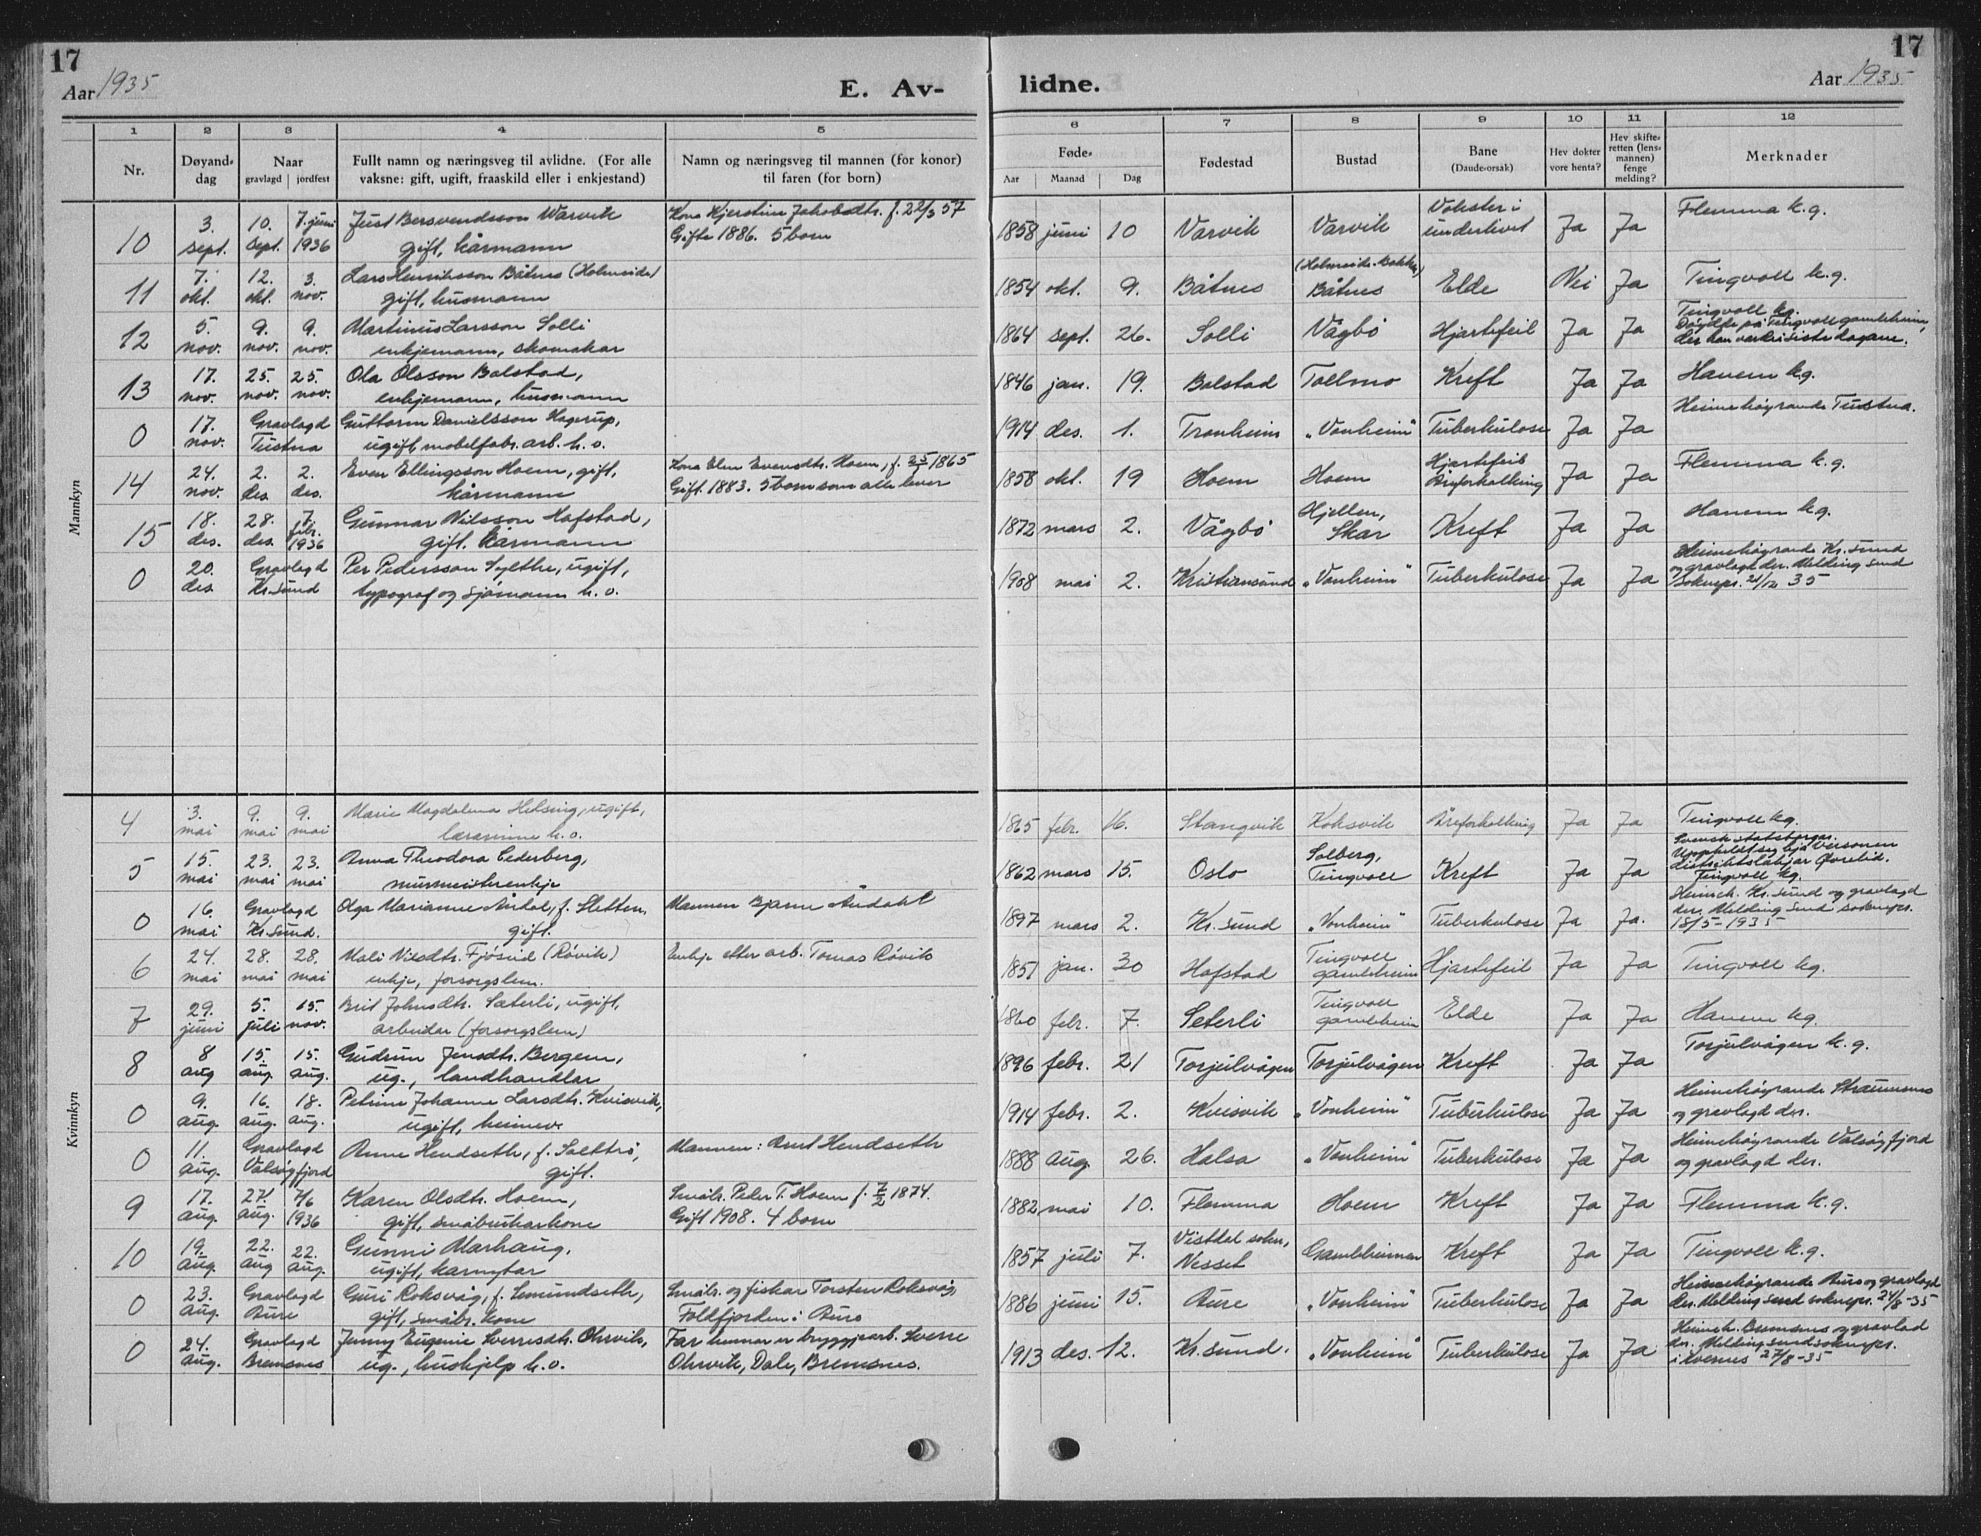 17
Aar 1935
E. Av-
lidne.
17
Aar 1935
1 2 3 4 5
6 7 8 9 10 11 12
Nr.
Døyand-
dag
Naar
gravlagd jordfest
Fullt namn og næringsveg til avlidne. (For alle
vaksne: gift, ugift, fraaskild eller i enkjestand)
Namn og næringsveg til mannen (for konor)
til faren (for born)
Føde-
Aar Maanad Dag
Fødestad
Bustad
Bane
(Daude-orsak)
Hev dokter
vore henta?
Hev skifte-
retten (lens-
mannen)
fenge
melding?
Merknader
Mannkyn
10 3. sept. 10. sept. 7. juni 1936 Just Bersvendsson Warvik
gift, kårmann
Kona Kjerstine Jakobsdtr. f. 22/3 57
Gifte 1886. 5 born
1858 juni 10 Varvik Varvik Vokster i
underlivet Ja Ja Flemma k.g.
11 7. okt. 12. okt. 3. nov. Lars Henriksson Båtnes (Holmeide)
gift, husmann
1854 okt. 9. Båtnes (Holmeide-Bakken)
Båtnes Elde Nei Ja Tingvoll k.g.
12 5. nov. 9. nov. 9. nov. Martinus Larsson Solli
enkjemann, skomakar
1864 sept. 26. Solli Vågbø Hjartefeil Ja Ja Tingvoll kg.
Døydde på Tingvoll gamleheim,
der han var dei siste dagane.
13 17. nov. 25. nov. 25. nov. Ola Olsson Bolstad,
enkjemann, husmann
1846 jan. 19. Bolstad Tollmo Kreft Ja Ja Hanem kg.
0 17. nov. Gravlagd
Tustna Guttorm Danielsson Hagerup,
ugift mobelfabr. arb. h. o.
1914 des. 1. Tronheim „Vonheim" Tuberkulose Ja Ja Heimehøyrande Tustna.
14 24. nov. 2. des. 2. des. Even Ellingsson Hoem, gift,
kårmann
Kona Elen Evensdtr. Hoem, f. 25/1 1865
Gift 1883. 5 born som alle lever
1858 okt. 19 Hoem Hoem Hjartefeil
Åreforkalking Ja Ja Flemma k.g.
15 18. des. 28. des. 7. febr. 1936 Gunnar Nilsson Hafstad,
gift. kårmann
1872 mars 2. Vågbø Hjellen,
Skar Kreft Ja Ja Hanem kg.
0 20. des. Gravlagd
Kr.sund Per Pedersson Sylthe, ugift,
typograf og sjømann h. o.
1908 mai 2. Kristiansund „Vonheim" Tuberkulose Ja Ja Heimehøyrande Kr. sund
og gravlagd der. Melding send
soknepr. 21/12 35
Kvinnkyn
4 3. mai 9. mai 9. mai Marie Magdalena Helsing, ugift,
lærarinne h. o.
1865 febr. 16. Stangvik Koksvik Åreforkalking Ja Ja Tingvoll kg.
5 15. mai 23. mai 23. mai Anna Theodora Cederberg,
murmeisterenkje
1862 mars 15. Oslo Solberg,
Tingvoll Kreft Ja Ja Svensk statsborgar.
Uppheldt seg hjå
distriktslækjar Øvrelid.
Tingvoll kg.
0 16. mai Gravlagd
Kr.sund. Olga Marianne Åndal, f. Sletten,
gift.
Mannen Bjarne Åndahl
1897 mars 2. Kr.sund „Vonheim" Tuberkulose Ja Ja. Heimeh. Kr. sund og gravlagd
der. Melding send soknepr.
18/5-1935
6 24. mai 28. mai 28. mai Mali Nilsdtr. Fjøseid (Røvik)
enkje, forsorgslem.
Enkje etter arb. Tomas Røvik
1851 jan. 30 Hafstad Tingvoll
gamleheim Hjartefeil Ja Ja Tingvoll kg.
7 29. juni 5. juli 15. nov. Brit Johnsdtr. Sæterli, ugift,
arbeidar (forsorgslem)
1860 febr. 7. Seterli Tingvoll
gamleheim Elde Ja Ja Hanem kg.
8 8 aug 15. aug. 15. aug. Gudrun Jensdtr. Bergem,
ug., landhandlar
1896 febr. 21 Torjulvågen Torjulvågen Kreft Ja Ja Torjulvågen k.g.
0 9. aug. 16. aug. 18. aug. Petrine Johanne Larsdtr. Kvisvik,
ugift, heimev.
1914 febr. 2. Kvisvik „Vonheim" Tuberkulose Ja Ja Heimehøyrande Straumsnes
og gravlagd der.
0 11. aug. Gravlagd
Valsøyfjord Anne Hendseth, f. Saltrø,
gift.
Mannen: Arnt Hendseth
1888 aug. 26. Halsa „Vonheim" Tuberkulose Ja Ja Heimehøyrande Valsøyfjord
og gravlagd der.
9 17. aug. 27. aug. 7/6 1936 Karen Olsdtr. Hoem,
gift, småbrukarkone
Småbr. Peder T. Hoem f. 7/2 1874.
Gift 1908. 4 born
1882 mai 10. Flemma Hoem Kreft Ja Ja Flemma k.g.
10 19. aug. 22. aug 22. aug. Gunni Marhaug,
ugift, karnytar
1857 juli 7. Vistdal sokn,
Nesset Gamleheimen Kreft Ja Ja Tingvoll k.g.
0 23. aug. Gravlagd
Aure Guri Roksvåg, f. Smundseth,
gift, småbr. kone
Småbr. og fiskar Torsten Roksvåg
Foldfjorden i Aure
1886 juni 15. Aure „Vonheim" Tuberkulose Ja Ja Heimehøyrande Aure og gravlagd
der. Melding send soknepr. 24/8-35
0 24. aug. Gravlagd
Bremsnes Jenny Eugenie Sverresdtr. Ohrvik,
ug., hushjelp h. o.
Far hennar er bryggjearb. Sverre
Ohrvik, Dale, Bremsnes.
1913 des. 12. Kr.sund. „Vonheim" Tuberkulose Ja Ja Heimeh. Bremsnes og gravlad
der. Melding send soknepr.
i Kvernes 27/8-35